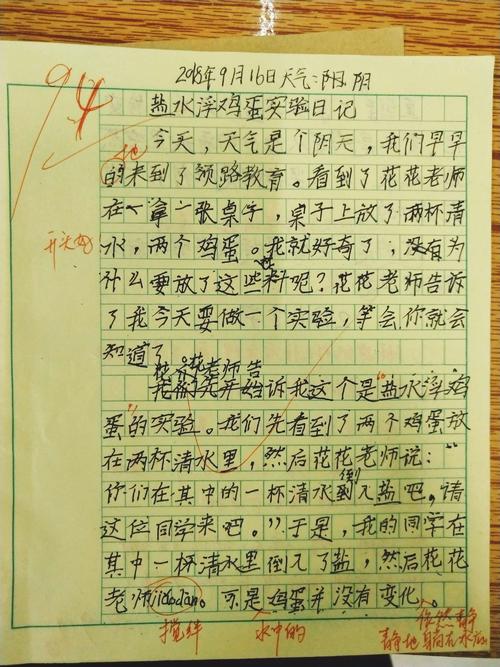 94
2018年9月16日天气:阴
盐水浮鸡蛋实验日记
今天，天气是个阴天，我们早早
地
的来到了领路教育。看到了花花老师
开头好
在拿一张桌子，桌子上放了两杯清
水，两个鸡蛋。我就好奇了，没有为
什么要放了这些材料呢？花花老师告诉
了我今天要做一个实验，等会你就会
知道了。
花花老师告
我们先开始诉我这个是“盐水浮鸡
蛋”的实验。我们先看到了两个鸡蛋放
在两杯清水里，然后花花老师说：“
你们在其中的一杯清水倒入盐吧，请
倒
这位同学来吧。”于是，我的同学在
其中一杯清水里倒入了盐，然后花花
老师jiaodan。可是鸡蛋并没有变化。
搅拌
水中的
依然静
静地躺在水底